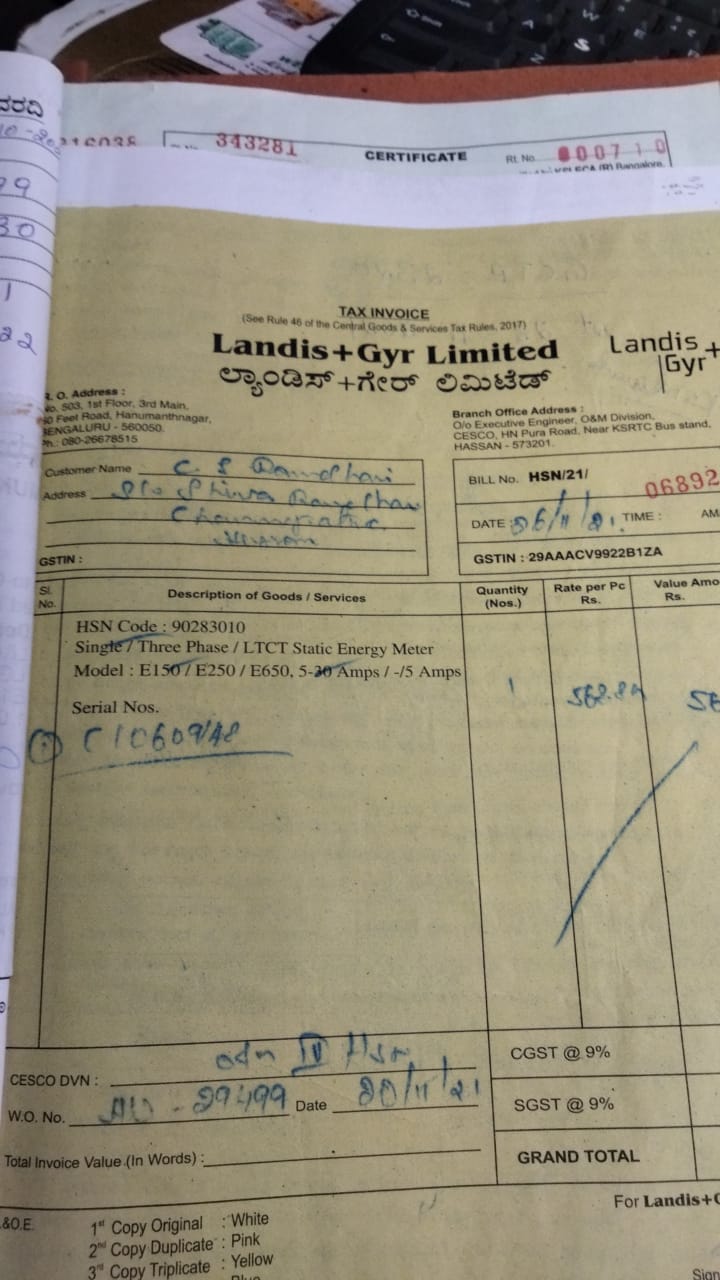 ವರದಿ
343281
CERTIFICATE Rt. No. 000710
TAX INVOICE
(See Rule 46 of the Central Goods & Services Tax Rules, 2017)
Landis+Gyr Limited
ಲ್ಯಾಂಡಿಸ್+ಗೇರ್ ಲಿಮಿಟೆಡ್
Landis
Gyr+
R. O. Address :
No. 503, 1st Floor, 3rd Main,
Feet Road, Hanumanthnagar,
BENGALURU - 560050.
Ph.: 080-26678515
Branch Office Address :
O/o Executive Engineer, O&M Division,
CESCO, HN Pura Road, Near KSRTC Bus stand,
HASSAN - 573201.
Customer Name C S
Address S/o
GSTIN :
BILL No. HSN/21/ 06892
DATE : 26/11/21. TIME : AM
GSTIN : 29AAACV9922B1ZA
Sl. No. Description of Goods / Services Quantity (Nos.) Rate per Pc Rs. Value Amo Rs.
HSN Code : 90283010
Single / Three Phase / LTCT Static Energy Meter
Model : E150 / E250 / E650, 5-30 Amps / -/5 Amps
1
Serial Nos.
CESCO DVN : IV Hsn
W.O. No. 29499 Date 20/11/21
Total Invoice Value (In Words) :
CGST @ 9%
SGST @ 9%
GRAND TOTAL
For Landis+G
&O.E.
1st Copy Original : White
2nd Copy Duplicate : Pink
3rd Copy Triplicate : Yellow